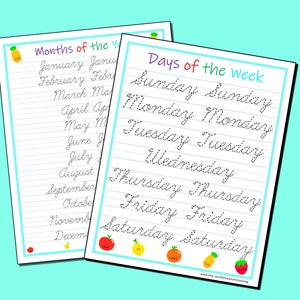 Months of the Y
January Janu
February Feb
March Mar
April Apr
May M
June Ju
July
August
September
October
November
December
Days of the Week
Sunday Sunday
Monday Monday
Tuesday Tuesday
Wednesday
Thursday Thursday
Friday Friday
Saturday Saturday